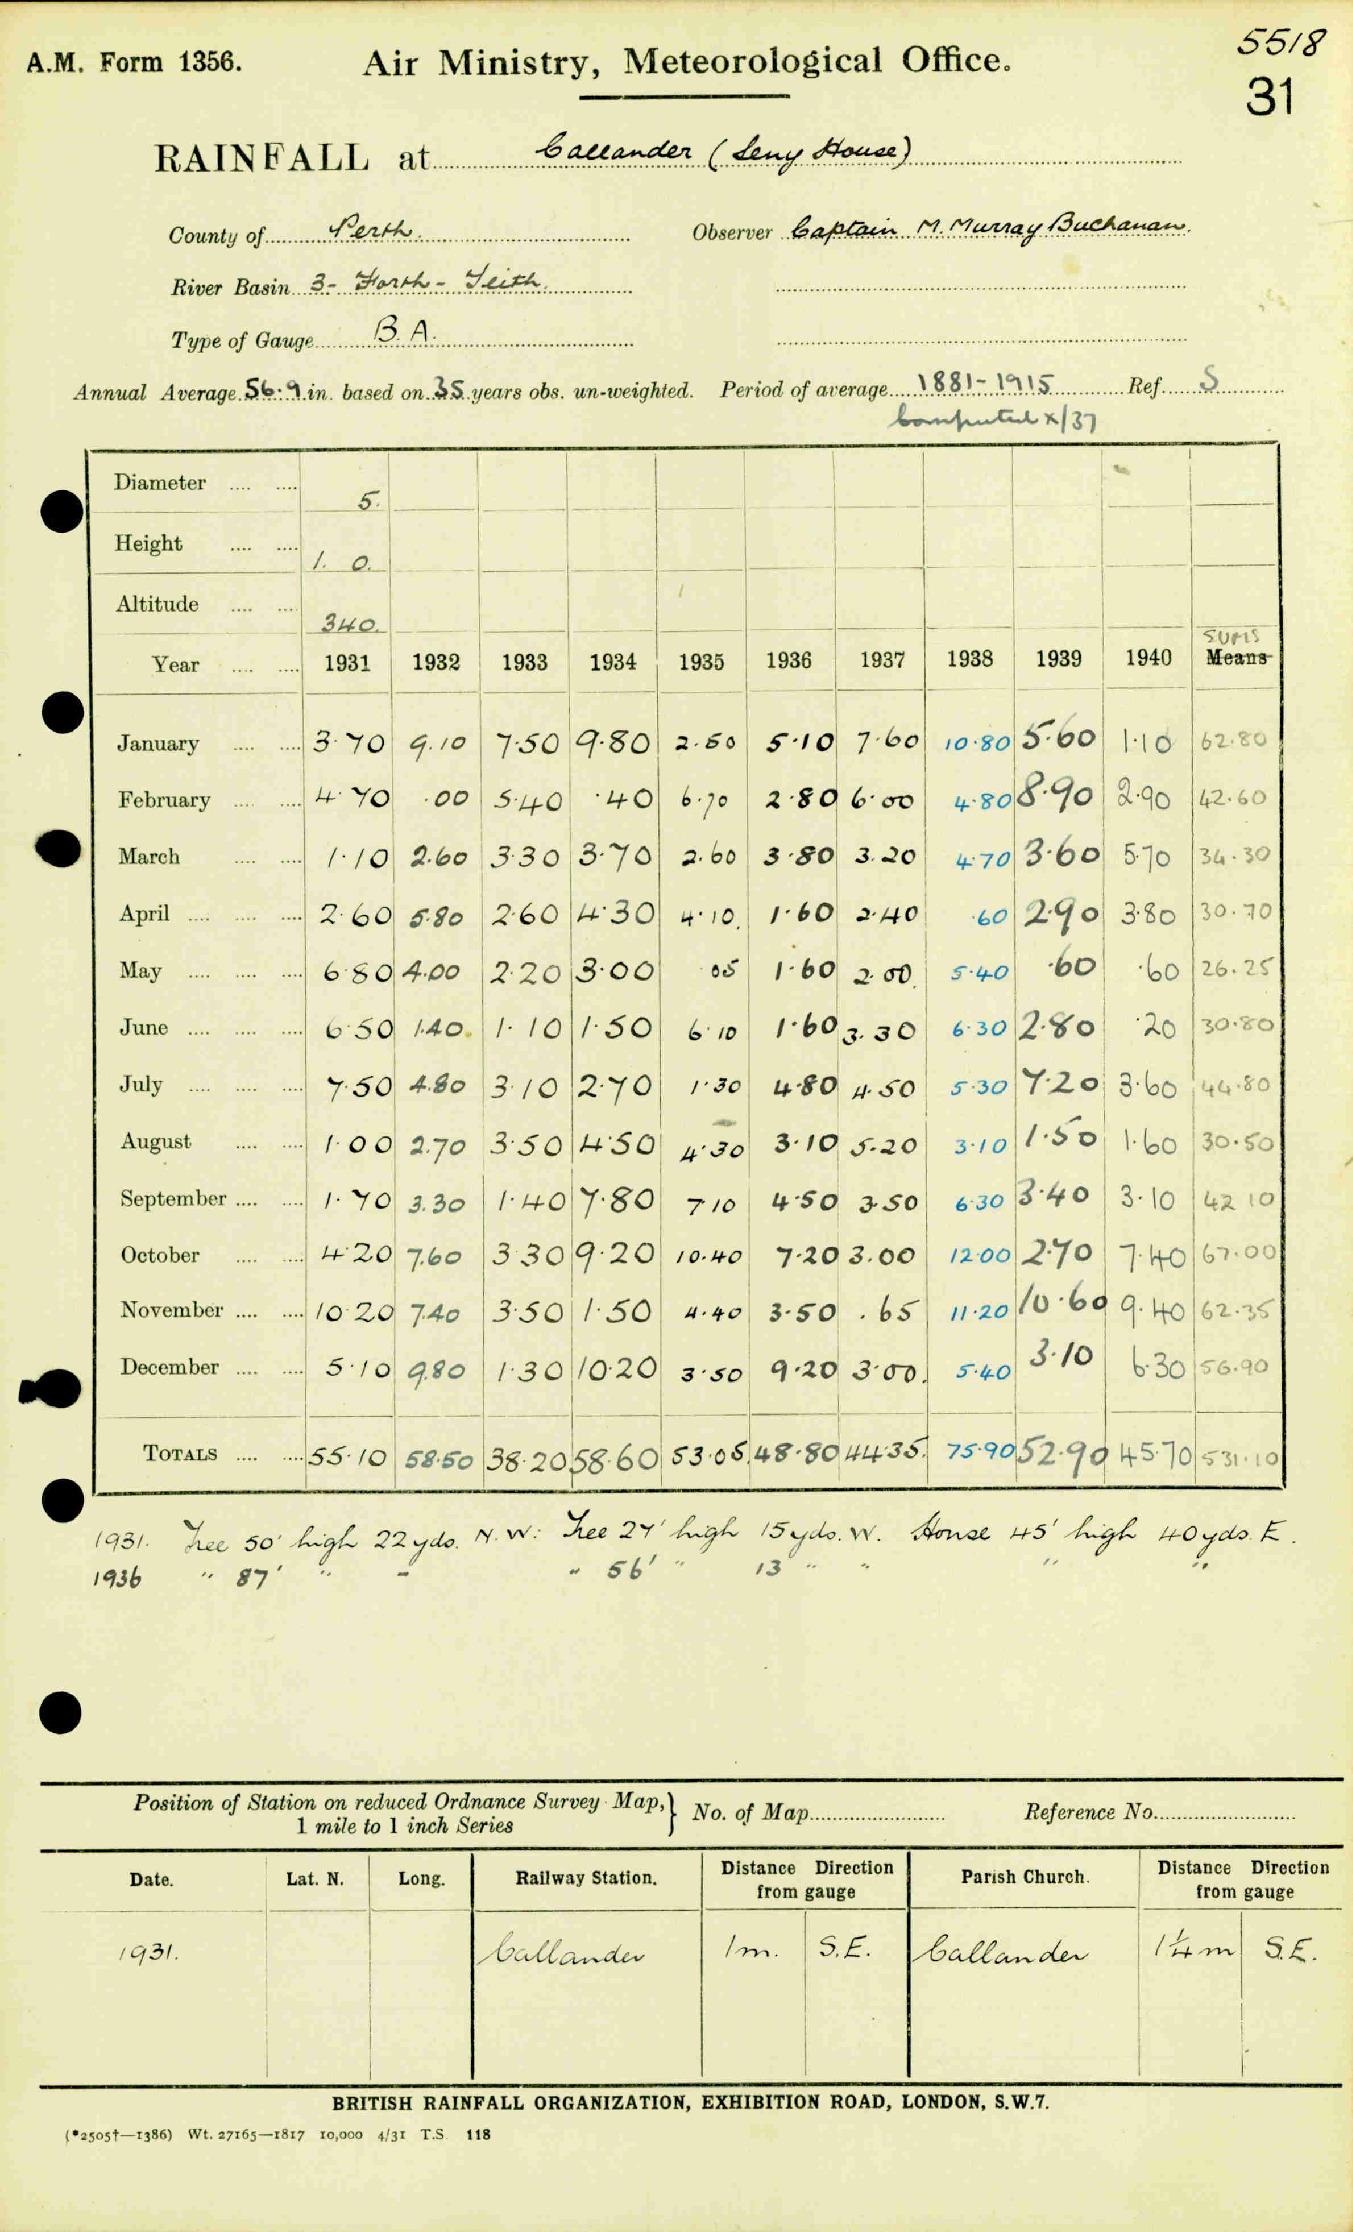 5518
A.M. Form 1356. Air Ministry, Meteorological Office. 31
RAINFALL at Callander (Leny House)
County of Perth. Observer Captain M. Murray Buchanan.
River Basin 3- Forth - Teith.
Type of Gauge B.A.
Annual Average 56.9 in. based on 35 years obs. un-weighted. Period of average 1881-1915 Ref. S
Computed x/37
Diameter 5.
Height 1. 0.
Altitude 340.
SUMS
Year 1931 1932 1933 1934 1935 1936 1937 1938 1939 1940 Means
January 3.70 9.10 7.50 9.80 2.60 5.10 7.60 10.80 5.60 1.10 62.80
February 4.70 .00 5.40 .40 6.70 2.80 6.00 4.80 8.90 2.90 42.60
March 1.10 2.60 3.30 3.70 2.60 3.80 3.20 4.70 3.60 5.70 34.30
April 2.60 5.80 2.60 4.30 4.10. 1.60 2.40 .60 2.90 3.80 30.70
May 6.80 4.00 2.20 3.00 .05 1.60 2.00. 5.40 .60 .60 26.25
June 6.50 1.40. 1.10 1.50 6.10 1.60 3.30 6.30 2.80 .20 30.80
July 7.50 4.80 3.10 2.70 1.30 4.80 4.50 5.30 7.20 3.60 44.80
August 1.00 2.70 3.50 4.50 4.30 3.10 5.20 3.10 1.50 1.60 30.50
September 1.70 3.30 1.40 7.80 7.10 4.50 3.50 6.30 3.40 3.10 42.10
October 4.20 7.60 3.30 9.20 10.40 7.20 3.00 12.00 2.70 7.40 67.00
November 10.20 7.40 3.50 1.50 4.40 3.50 .65 11.20 10.60 9.40 62.35
December 5.10 9.80 1.30 10.20 3.50 9.20 3.00. 5.40 3.10 6.30 56.90
TOTALS 55.10 58.50 38.20 58.60 53.05. 48.80 44.35. 75.90 52.90 45.70 531.10
1931. Tree 50' high 22 yds. N.W: Tree 27' high 15 yds. W. House 45' high 40 yds. E.
1936 " 87' " - " 56' " 13 " " " "
Position of Station on reduced Ordnance Survey Map, } No. of Map Reference No.
1 mile to 1 inch Series
Date. Lat. N. Long. Railway Station. Distance from gauge Direction Parish Church. Distance from gauge Direction
1931. Callander 1m. S.E. Callander 1¼ m S.E.
BRITISH RAINFALL ORGANIZATION, EXHIBITION ROAD, LONDON, S.W.7.
(*2505†—1386) Wt. 27165—1817 10,000 4/31 T.S. 118